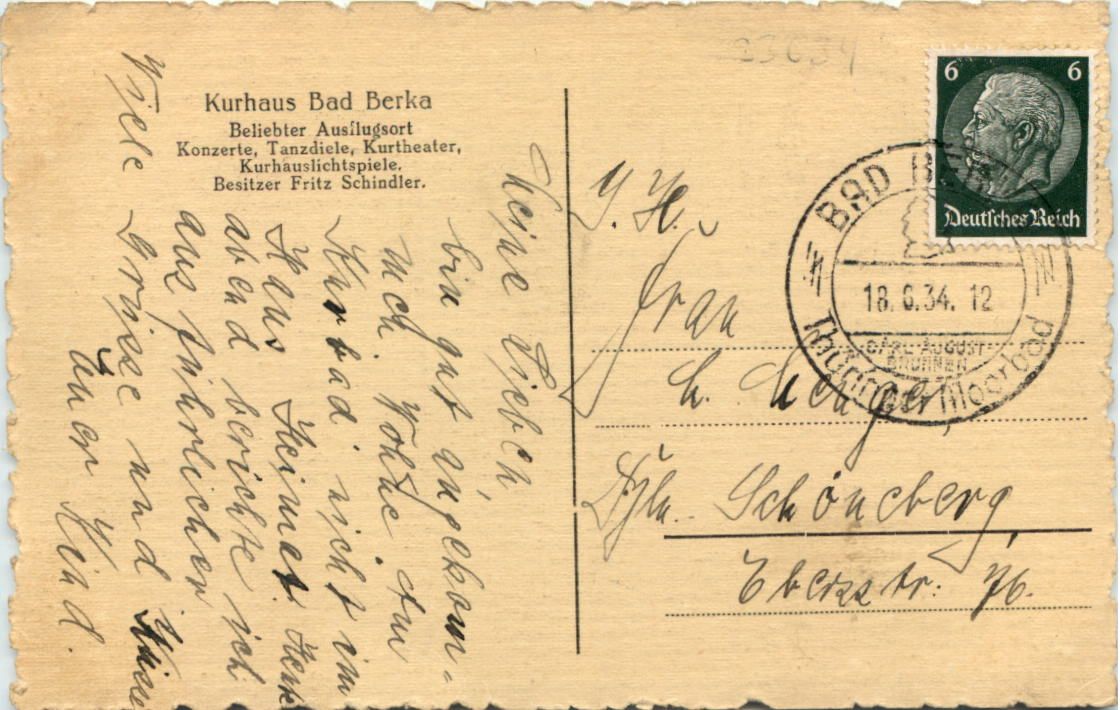 Kurhaus Bad Berka
Beliebter Ausflugsort
Konzerte, Tanzdiele, Kurtheater,
Kurhauslichtspiele.
Besitzer Fritz Schindler.
Meine Lieben,
bin gut angekom-
men. Wohne
Kurbad nicht im
Haus Heimat.
abend berichte ich
ausführlicher.
Viele Grüsse und Küsse
Euer Kind.
33634
6 6
Deutsches Reich
BAD BERKA
18.6.34. 12
CARL-AUGUST-
BRUNNEN
Thüringer Moorbad
Frau
Schöneberg,
Ebersstr. 76.